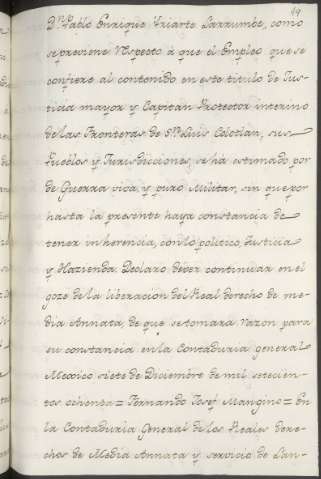 49
Dn. Pablo Enrique Yriarte Larrumbe, como
se previene respecto à que el Empleo que se
confiere al contenido en este titulo de Jus-
ticia mayor y Capitan Protector interino
de las Fronteras de Sn. Luis Colotlan, sus
Pueblos y Jurisdicciones, se ha estimado por
de Guerra viva, y puro Militar, sin que por
hasta la presente haya constancia de
tener inherencia, con lo politico, Justicia
y Hazienda. Declaro dever continuar en el
goze de la liberacion del Real derecho de me-
dia Annata, de que se tomará razon para
su constancia en la Contaduria general
Mexico siete de Diciembre de mil setecien-
tos ochenta = Fernando Josef Mangino = En
la Contaduria General de los Reales dere-
chos de Media Annata y servicio de Lan-